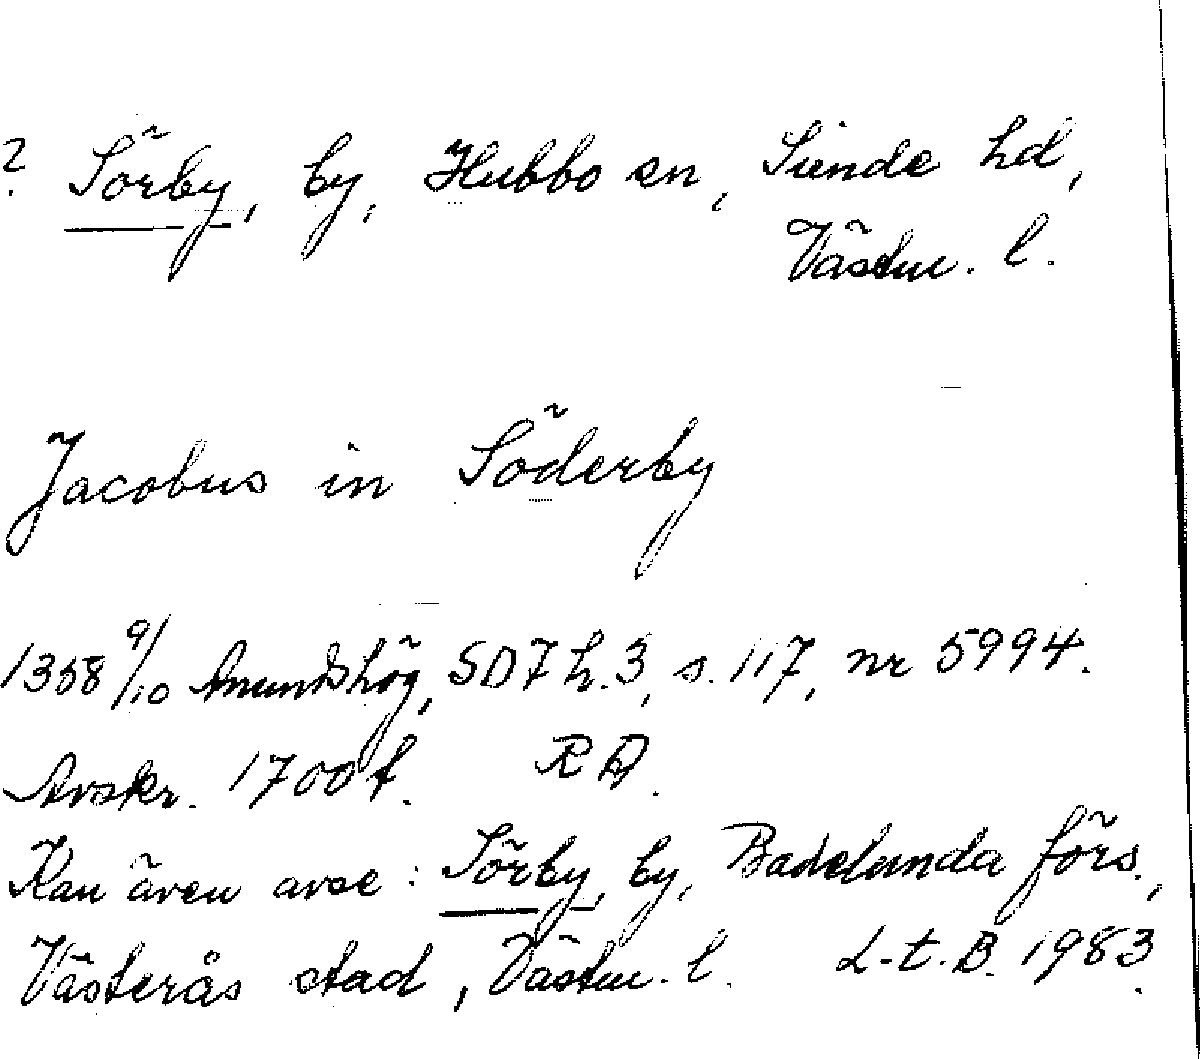 ? Sörby, by, Hubbo sn, Siende hd,
Västm. l.
Jacobus in Söderby
1358 9/10 Anundshög, SD 7 h. 3, s. 117, nr 5994.
Avskr. 1700 t. RA.
Kan även avse: Sörby, by, Badelunda förs.,
Västerås stad, Västm. l. L-t. B. 1983.